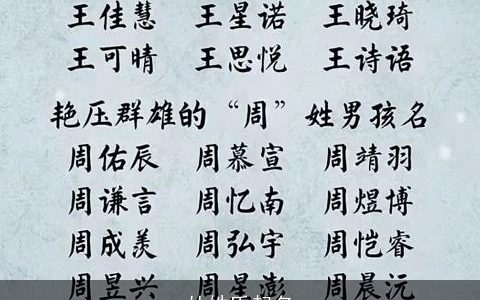 王佳慧 王星诺 王晓琦
王可晴 王思悦 王诗语
艳压群雄的“周”姓男孩名
周佑辰 周慕宣 周靖羽
周谦言 周忆南 周煜博
周成羡 周弘宇 周恺睿
周昱兴 周星澎 周晨沅